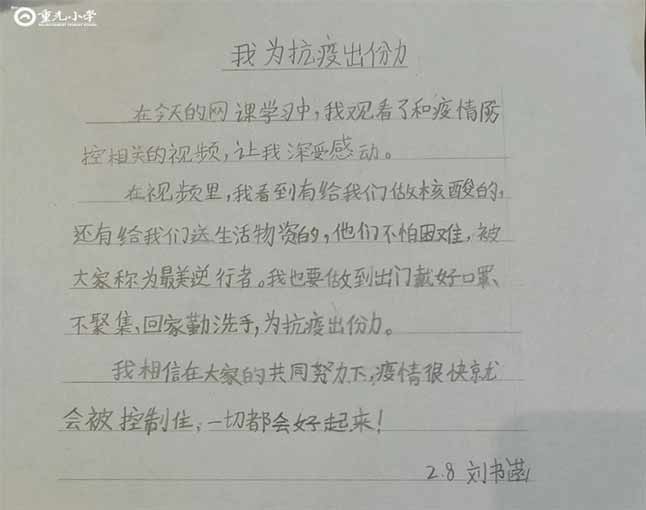 重光小学
我为抗疫出份力
在今天的网课学习中，我观看了和疫情防
控相关的视频，让我深受感动。
在视频里，我看到有给我们做核酸的，
还有给我们送生活物资的，他们不怕困难，被
大家称为最美逆行者。我也要做到出门戴好口罩、
不聚集、回家勤洗手，为抗疫出份力。
我相信在大家的共同努力下，疫情很快就
会被控制住，一切都会好起来！
2.8 刘书